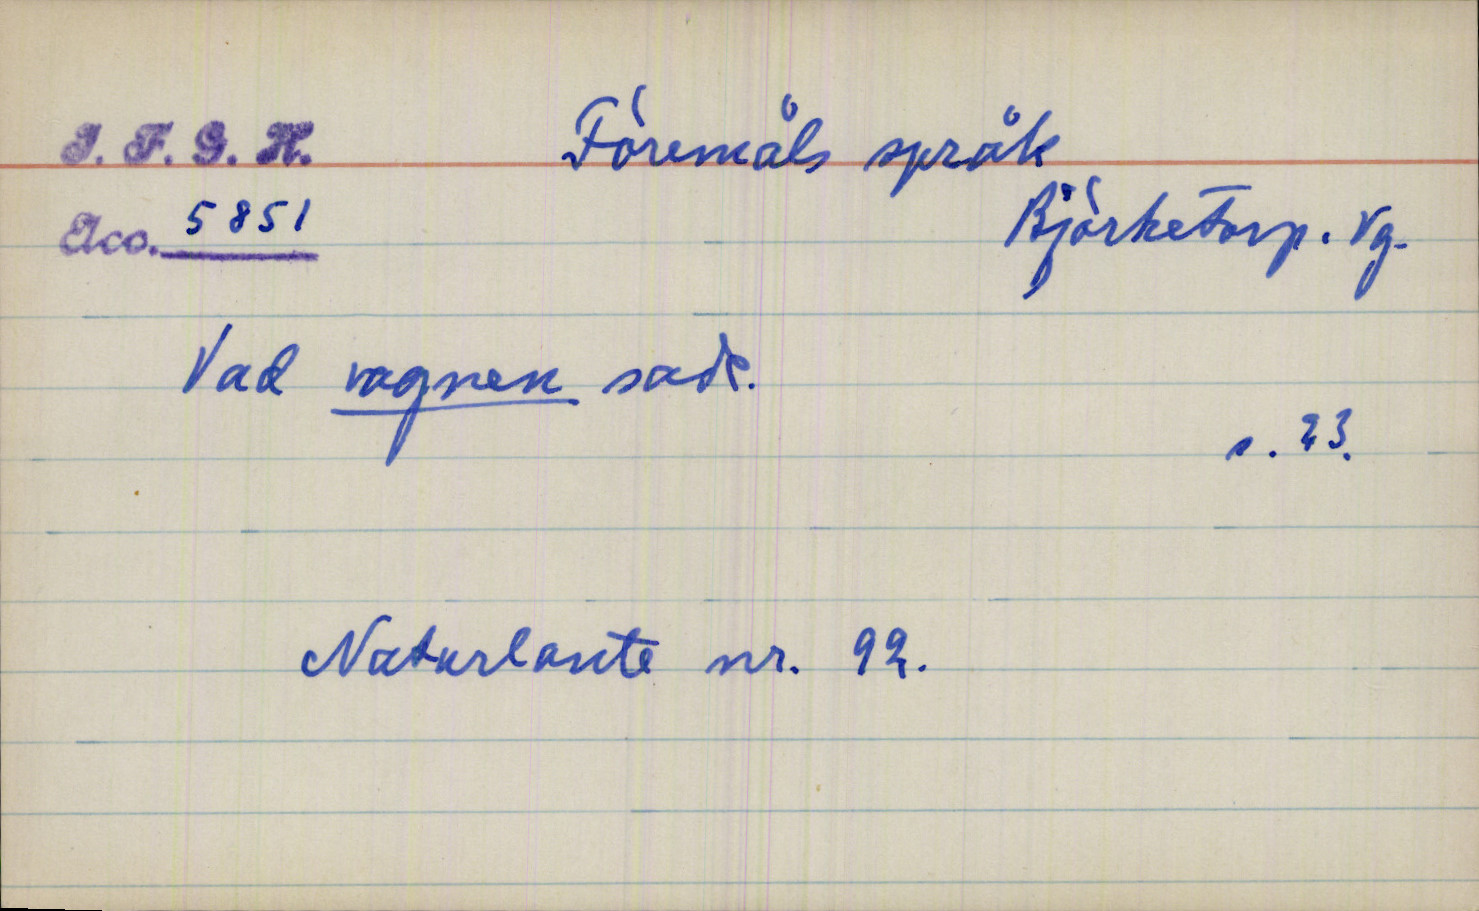 I. F. G. H.
Föremåls språk
Acc. 5851
Björketorp. Vg.
Vad vagnen sade.
s. 23.
Naturlante nr. 92.